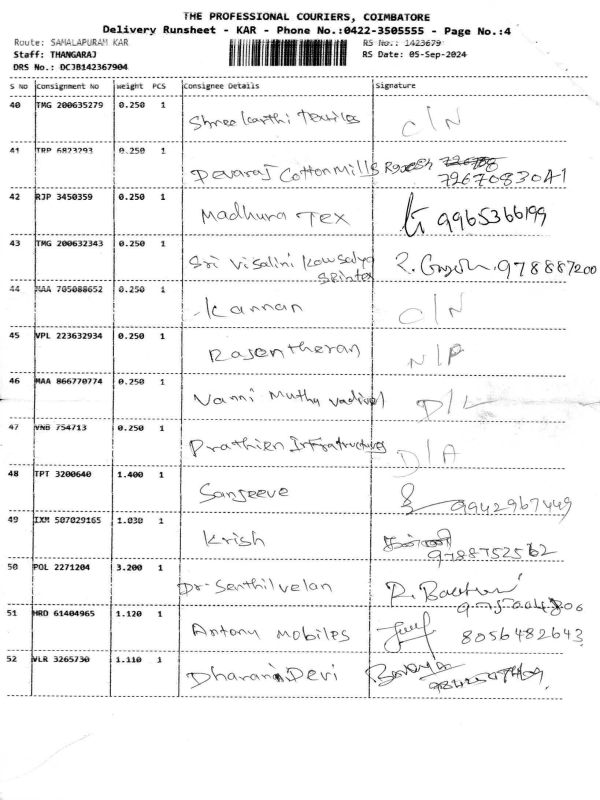 THE PROFESSIONAL COURIERS, COIMBATORE
Delivery Runsheet - KAR - Phone No.:0422-3505555 - Page No.:4
Route: SAMALAPURAM KAR RS No.: 1423679
Staff: THANGARAJ RS Date: 05-Sep-2024
DRS No.: DCJB142367904
S No Consignment No weight PCS Consignee Details Signature
40 TMG 200635279 0.250 1 Shree karthi Textiles C/N
41 TRP 6823293 0.250 1 Devaraj Cotton Mills Rajesh
7267083041
42 RJP 3450359 0.250 1 Madhura Tex 9965366199
43 TMG 200632343 0.250 1 Sri Visalini Kowsalya 978887200
44 MAA 705088652 0.250 1 Kannan C/N
45 VPL 223632934 0.250 1 Rajentheran N/P
46 MAA 866770774 0.250 1 Vanni Muthu vadivel D/L
47 VNB 754713 0.250 1 Prathien Infratructures D/A
48 TPT 3200640 1.400 1 Sanjeeve 9942967449
49 IXM 507029165 1.030 1 Krish
9788752562
50 POL 2271204 3.200 1 Dr. Senthilvelan R.
51 HRD 61404965 1.120 1 Antony mobiles 8056482643
52 VLR 3265730 1.110 1 Dharani Devi